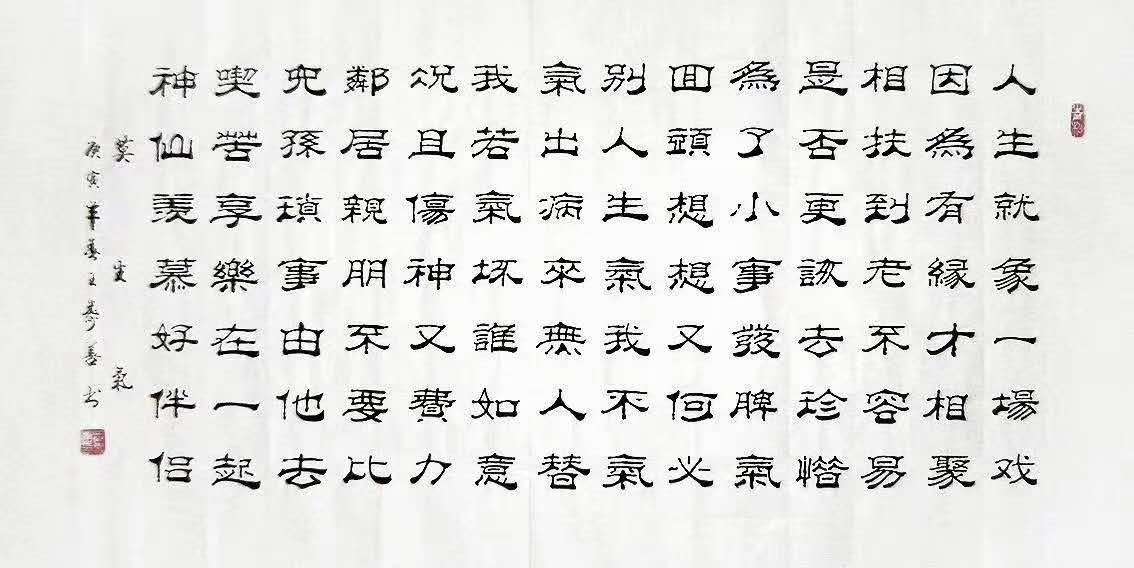 人生就象一場戏
因為有緣才相聚
相扶到老不容易
是否更該去珍惜
為了小事發脾氣
回頭想想又何必
别人生氣我不氣
氣出病來無人替
我若氣坏誰如意
况且傷神又費力
鄰居親朋不要比
兒孫瑣事由他去
喫苦享樂在一起
神仙羡慕好伴侣
莫生氣
庚寅年春王